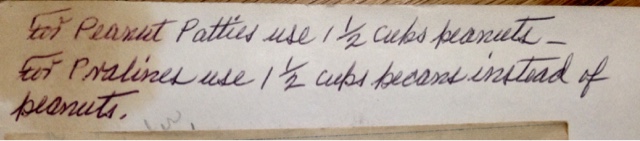 For Peanut Patties use 1 1/2 cups peanuts -
For Pralines use 1 1/2 cups pecans instead of
peanuts.